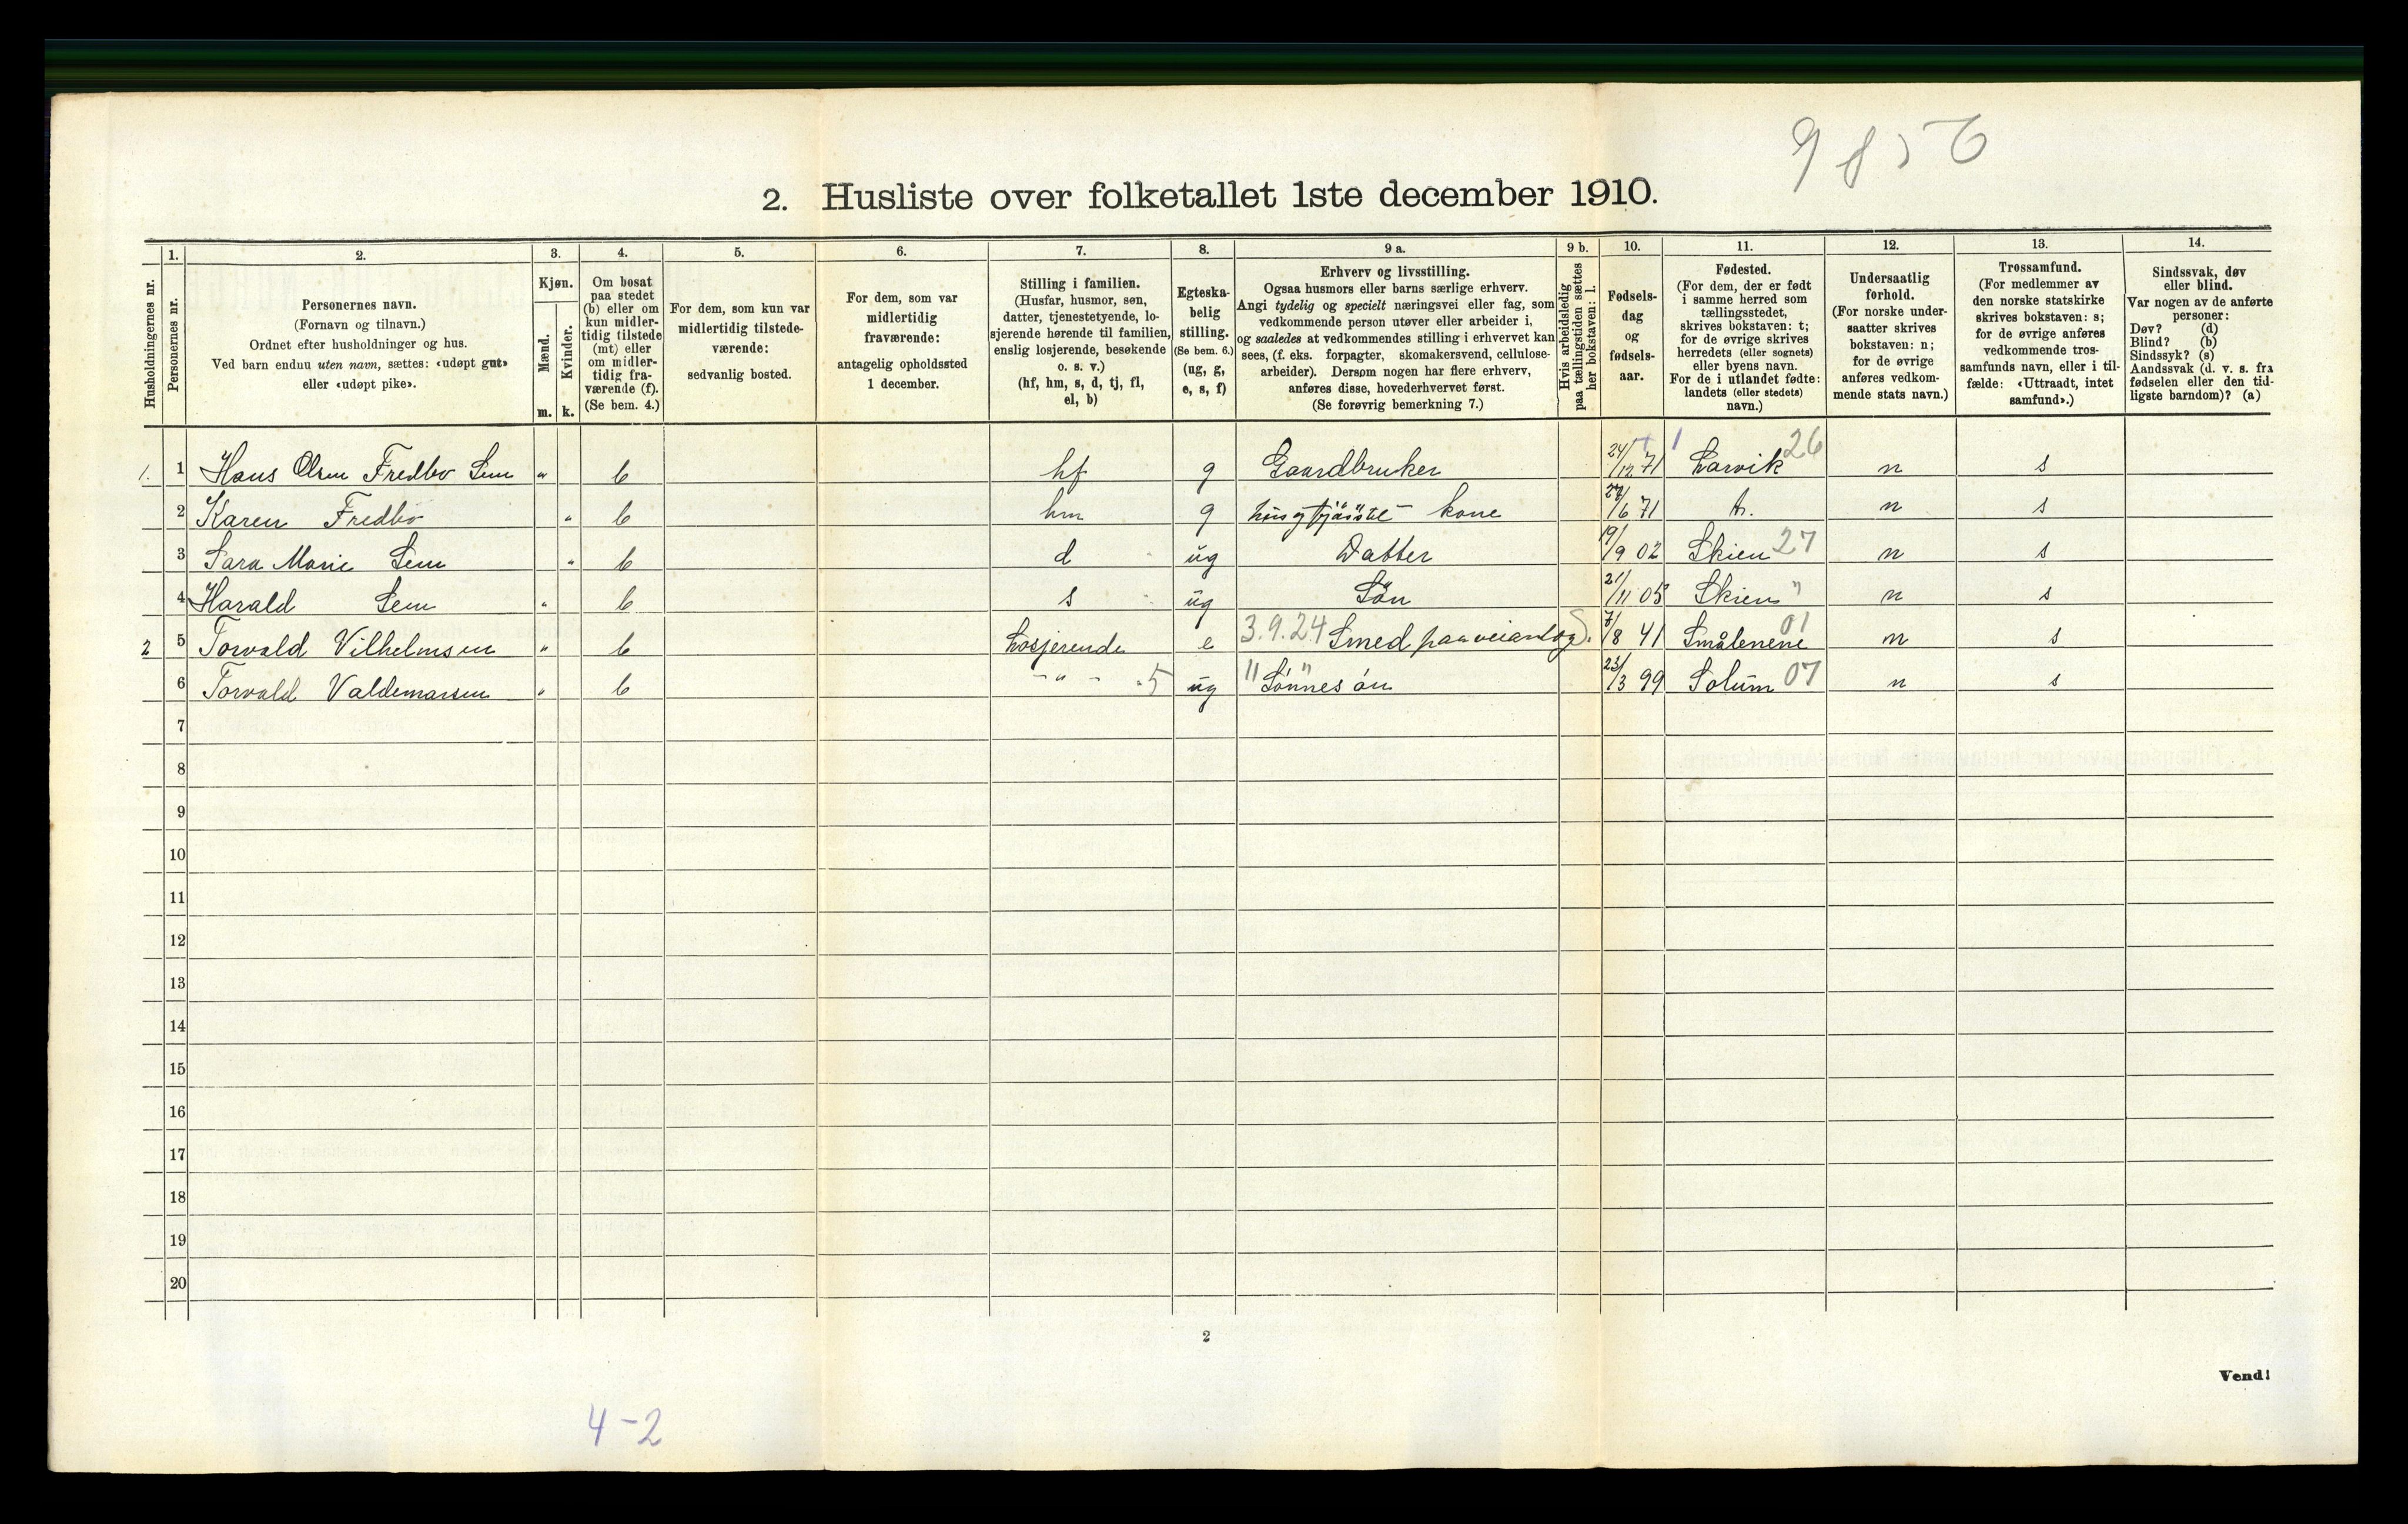 9856
2. Husliste over folketallet 1ste december 1910.
Husholdningernes nr.
1. Personernes nr.
2. Personernes navn.
(Fornavn og tilnavn.)
Ordnet efter husholdninger og hus.
Ved barn endnu uten navn, sættes: «udøpt gut»
eller «udøpt pike».
3. Kjøn.
Mænd. m.
Kvinder. k.
4. Om bosat
paa stedet
(b) eller om
kun midler-
tidig tilstede
(mt) eller
om midler-
tidig fra-
værende (f).
(Se bem. 4.)
5. For dem, som kun var
midlertidig tilstede-
værende:
sedvanlig bosted.
6. For dem, som var
midlertidig
fraværende:
antagelig opholdssted
1 december.
7. Stilling i familien.
(Husfar, husmor, søn,
datter, tjenestetyende, lo-
sjerende hørende til familien,
enslig losjerende, besøkende
o. s. v.)
(hf, hm, s, d, tj, fl,
el, b)
8. Egteska-
belig
stilling.
(Se bem. 6.)
(ug, g,
e, s, f)
9 a. Erhverv og livsstilling.
Ogsaa husmors eller barns særlige erhverv.
Angi tydelig og specielt næringsvei eller fag, som
vedkommende person utøver eller arbeider i,
og saaledes at vedkommendes stilling i erhvervet kan
sees, (f. eks. forpagter, skomakersvend, cellulose-
arbeider). Dersom nogen har flere erhverv,
anføres disse, hovederhvervet først.
(Se forøvrig bemerkning 7.)
9 b. Hvis arbeidsledig
paa tællingstiden sættes
her bokstaven: l.
10. Fødsels-
dag
og
fødsels-
aar.
11. Fødested.
(For dem, der er født
i samme herred som
tællingsstedet,
skrives bokstaven: t;
for de øvrige skrives
herredets (eller sognets)
eller byens navn.
For de i utlandet fødte:
landets (eller stedets)
navn.)
12. Undersaatlig
forhold.
(For norske under-
saatter skrives
bokstaven: n;
for de øvrige
anføres vedkom-
mende stats navn.)
13. Trossamfund.
(For medlemmer av
den norske statskirke
skrives bokstaven: s;
for de øvrige anføres
vedkommende tros-
samfunds navn, eller i til-
fælde: «Uttraadt, intet
samfund».)
14. Sindssvak, døv
eller blind.
Var nogen av de anførte
personer:
Døv? (d)
Blind? (b)
Sindssyk? (s)
Aandssvak (d. v. s. fra
fødselen eller den tid-
ligste barndom)? (a)
1. 1 Hans Olsen Fredbo Sem " b hf g Gaardbruker 24/12 71 Larvik 26 n s
2 Karen Fredbo " b hm g kone 27/6 71 t. n s
3 Sara Marie Sem " b d ug Datter 19/9 02 Skien 27 n s
4 Harald Sem " b s ug Søn 21/11 05 Skien " n s
2 5 Torvald Vilhelmsen " b Losjerende e 3.9.24 Smed paa veianlæg S. 7/8 41 Smålenene 01 n s
6 Torvald Valdemarsen " b - " - .5 ug " Sønnesøn 23/3 99 Solum 07 n s
7
8
9
10
11
12
13
14
15
16
17
18
19
20
2
Vend!
4-2